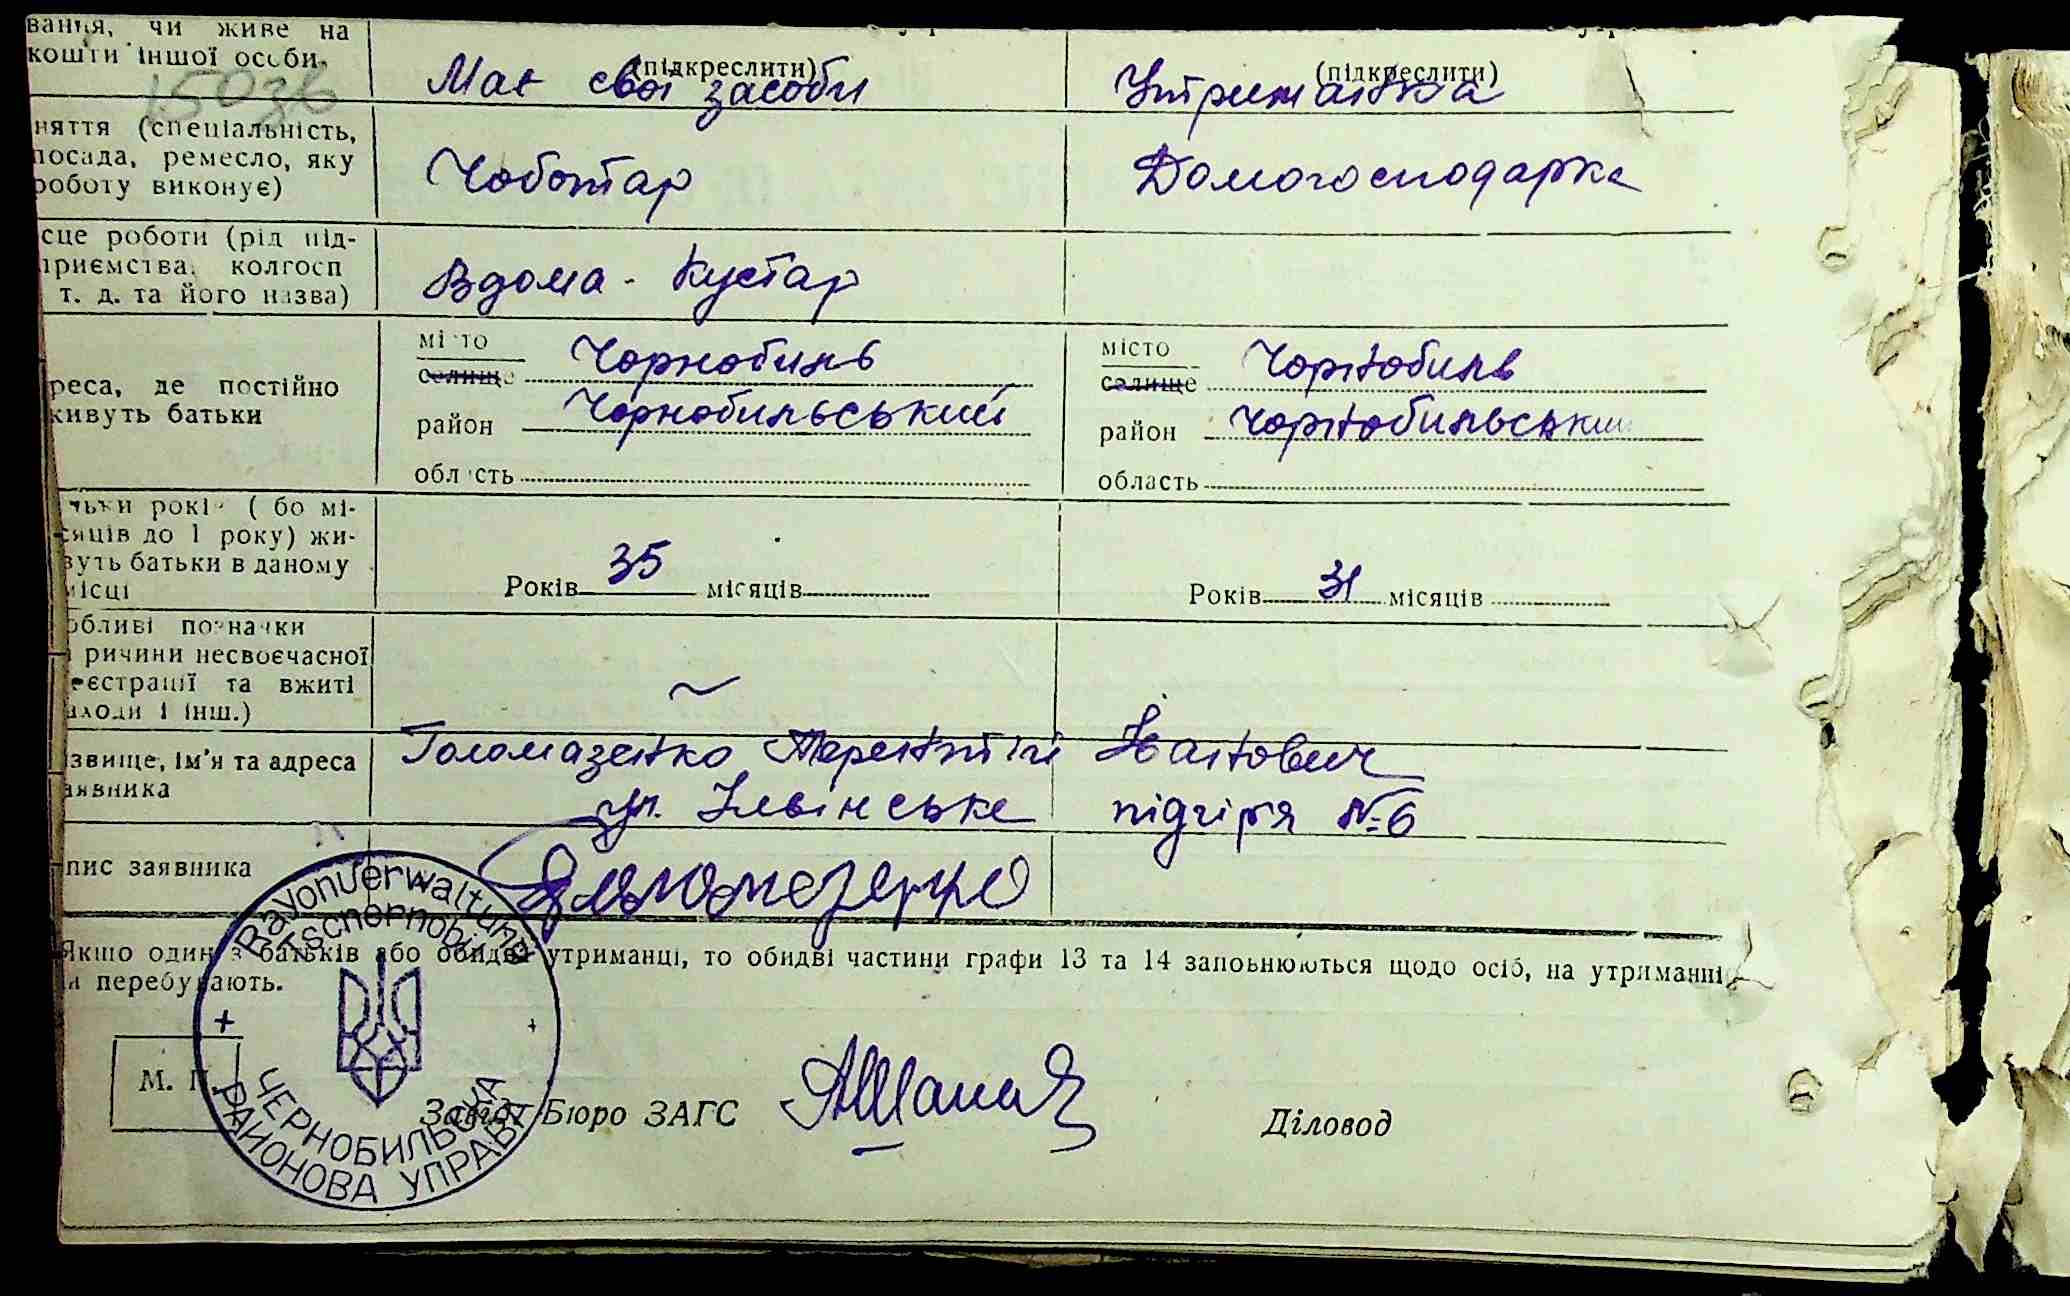 вання, чи живе на
кошти іншої особи.
(підкреслити)
(підкреслити)
Має свої засоби
Утриманка
1503в
няття (спеціальність,
посада, ремесло, яку
роботу виконує)
Чоботар
Домогосподарка
сце роботи (рід під-
приємства, колгосп
т. д. та його назва)
Вдома - Кустар
реса, де постійно
живуть батьки
місто Чорнобиль
селище
район Чорнобильський
область
місто Чорнобиль
селище
район Чорнобильський
область
льки років ( бо мі-
сяців до 1 року) жи-
вуть батьки в даному
місці
Років 35 місяців
Років 31 місяців
обливі позначки
ричини несвоєчасної
реєстрації та вжиті
аходи і інш.)
ізвище, ім'я та адреса
аявника
Голомазенко Терентій Іванович
ул. Ільінське підгір'я №6
пис заявника
Якщо один з батьків або обидва утриманці, то обидві частини графи 13 та 14 заповнюються щодо осіб, на утриманні
перебувають.
Rayonverwaltung
Tschernobil
ЧЕРНОБИЛЬСЬКА
РАЙОНОВА УПРАВА
М. П.
Завід. Бюро ЗАГС
Діловод